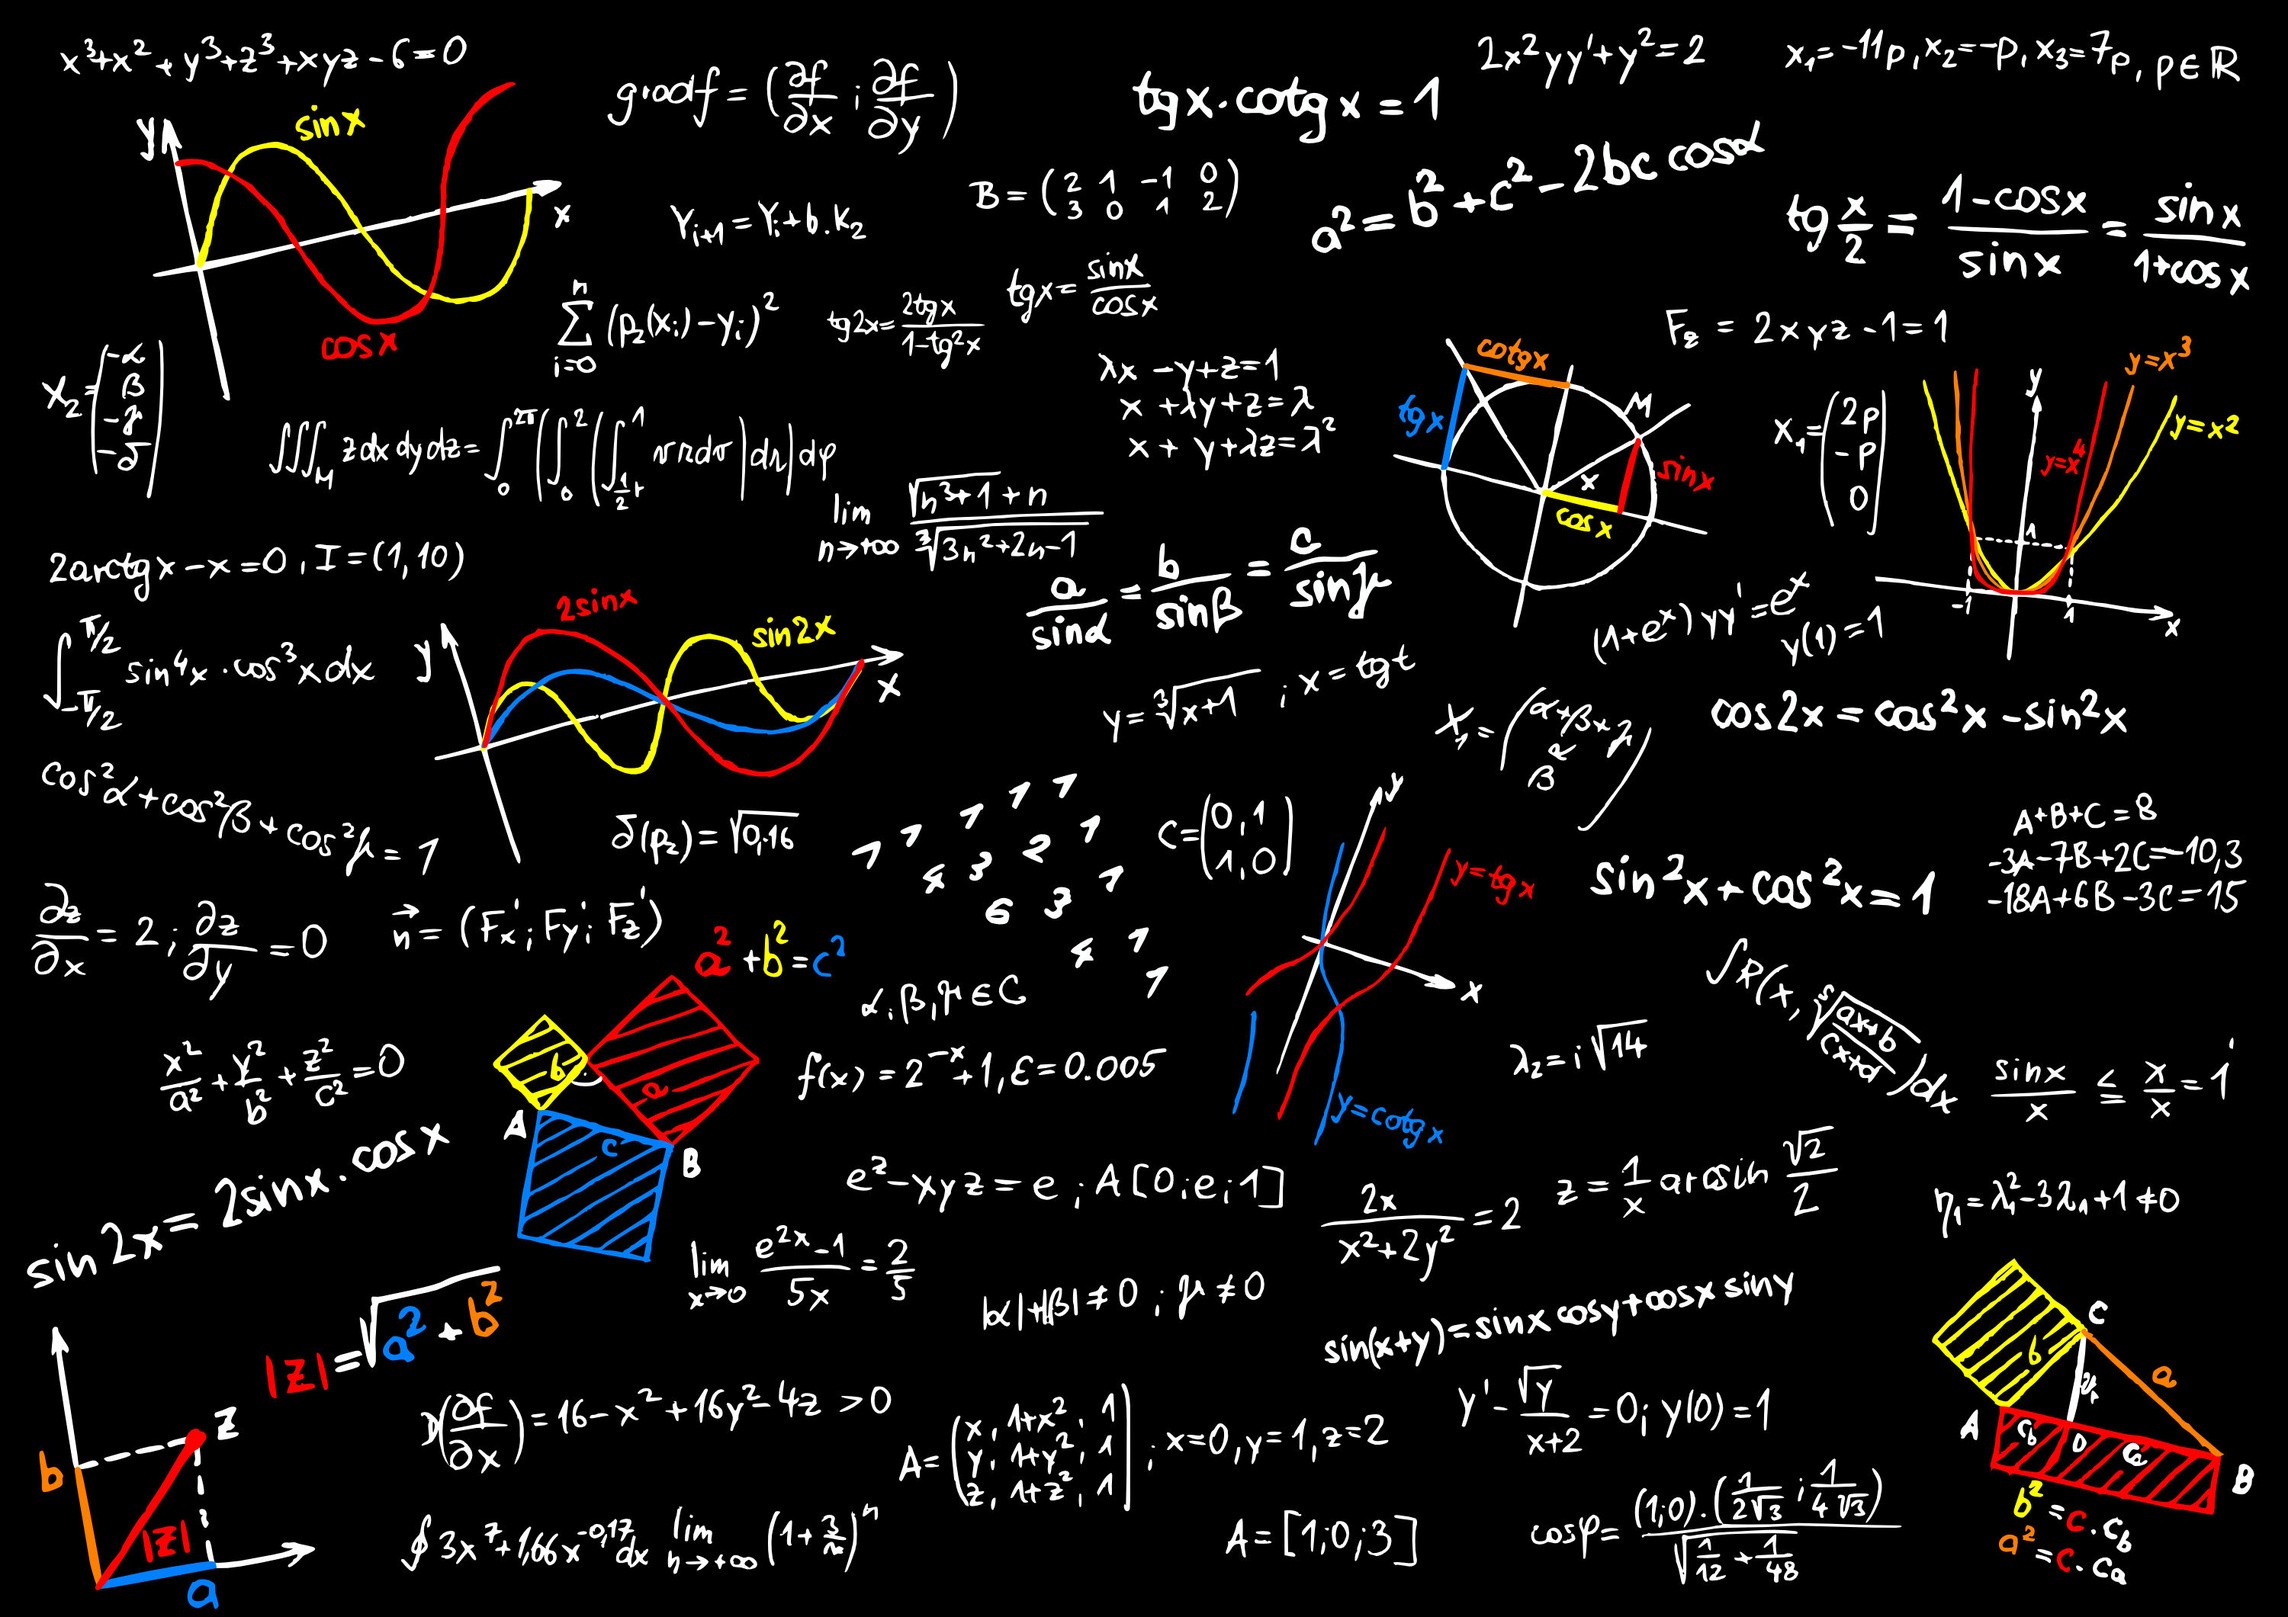 x³+x²+y³+z³+xyz-6=0
gradf = (∂f/∂x ; ∂f/∂y)
tgx·cotgx = 1
2x²yy'+y²=2
x₁=-11p, x₂=-p, x₃=7p, p∈ℝ
y
sinx
x
cosx
Yᵢ₊₁=Yᵢ+b.K₂
B = (2 1 -1 0
3 0 1 2)
a²=b²+c²-2bc cosα
tg x/2 = 1-cosx/sinx = sinx/1+cosx
X₂=(-α
β
-γ
-δ)
n
∑ (p₂(xᵢ)-yᵢ)²
i=0
tg2x= 2tgx/1-tg²x
tgx= sinx/cosx
F_z = 2xyz-1=1
λx-y+z=1
x+λy+z=λ
x+y+λz=λ²
cotgx
tgx
M
sinx
x
cosx
X₁=(2p
-p
0)
y
y=x³
y=x²
y=x⁴
1
-1
1
x
∫∫∫_M zdxdydz=∫₀^2π(∫₀²(∫_½r^1 vrdv)dr)dφ
lim n→+∞ √n³+1+n / ³√3n²+2n-1
2arctgx-x=0, I=(1,10)
a/sinα = b/sinβ = c/sinγ
(1+eˣ)yy'=eˣ
y(1)=1
∫_-π/2^π/2 sin⁴x·cos³xdx
y
2sinx
sin2x
x
y=³√x+1 ; x=tgt
X₁=(α+β+γ
α
β)
cos2x=cos²x-sin²x
cos²α+cos²β+cos²γ=1
δ(p₂)=√0,16
1 1 1 1 1
4 3 2 1
6 3 1
4 1
1
C=(0,1
1,0)
y
y=tgx
x
y=cotgx
sin²x+cos²x=1
A+B+C=8
-3A-7B+2C=-10,3
-18A+6B-3C=15
∂z/∂x=2; ∂z/∂y=0
n⃗=(Fx'; Fy; Fz')
a²+b²=c²
α,β,γ∈C
∫R(x, ˢ√ax+b/cx+d)dx
x²/a²+y²/b²+z²/c²=0
b
a
A
c
B
f(x)=2⁻ˣ+1, ε=0.005
λ₂=i√14
sinx/x ≤ x/x=1
sin2x=2sinx·cosx
e^z-xyz=e; A[0;e;1]
2x/x²+2y²=2
z=1/x arcsin √2/2
η₁=λ₁²-3λ₁+1≠0
lim x→0 e²ˣ-1/5x=2/5
|α|+|β|≠0; γ≠0
sin(x+y)=sinx cosy+cosx siny
|z|=√a²+b²
b
z
|z|
a
D(∂f/∂x)=16-x²+16y²-4z >0
A=(x, 1+x², 1
y, 1+y², 1
z, 1+z², 1) ; x=0, y=1, z=2
y'-√y/x+2=0; y(0)=1
C
b
a
A
c_b
D
c_a
B
b²=c·c_b
a²=c·c_a
∮3x⁷+1,66x^-0,17dx lim n→+∞ (1+3/n)ⁿ
A=[1;0;3]
cosφ= (1;0).(1/2√3 ; 1/4√3) / √1/12+1/48